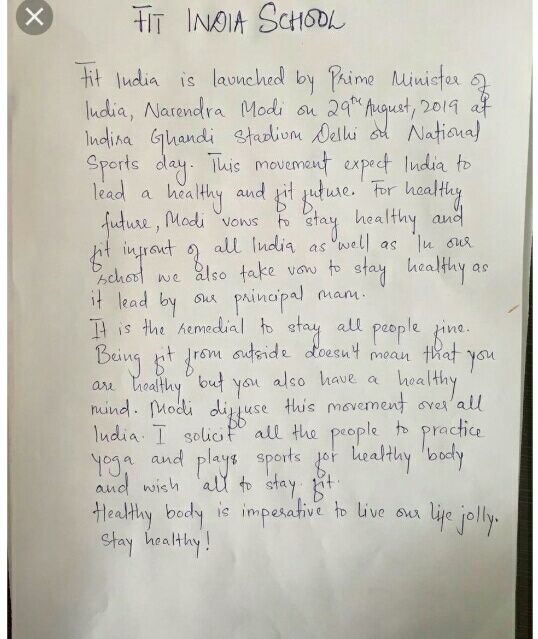 FIT INDIA SCHOOL
Fit India is launched by Prime Minister of
India, Narendra Modi on 29th August, 2019 at
Indira Ghandi Stadium Delhi on National
Sports day. This movement expect India to
lead a healthy and fit future. For healthy
future, Modi vows to stay healthy and
fit infront of all India as well as In our
school we also take vow to stay healthy as
it lead by our principal mam.
It is the remedial to stay all people fine.
Being fit from outside doesn't mean that you
are healthy but you also have a healthy
mind. Modi diffuse this movement over all
India. I solicit all the people to practice
yoga and plays sports for healthy body
and wish all to stay fit.
Healthy body is imperative to live our life jolly.
Stay healthy!